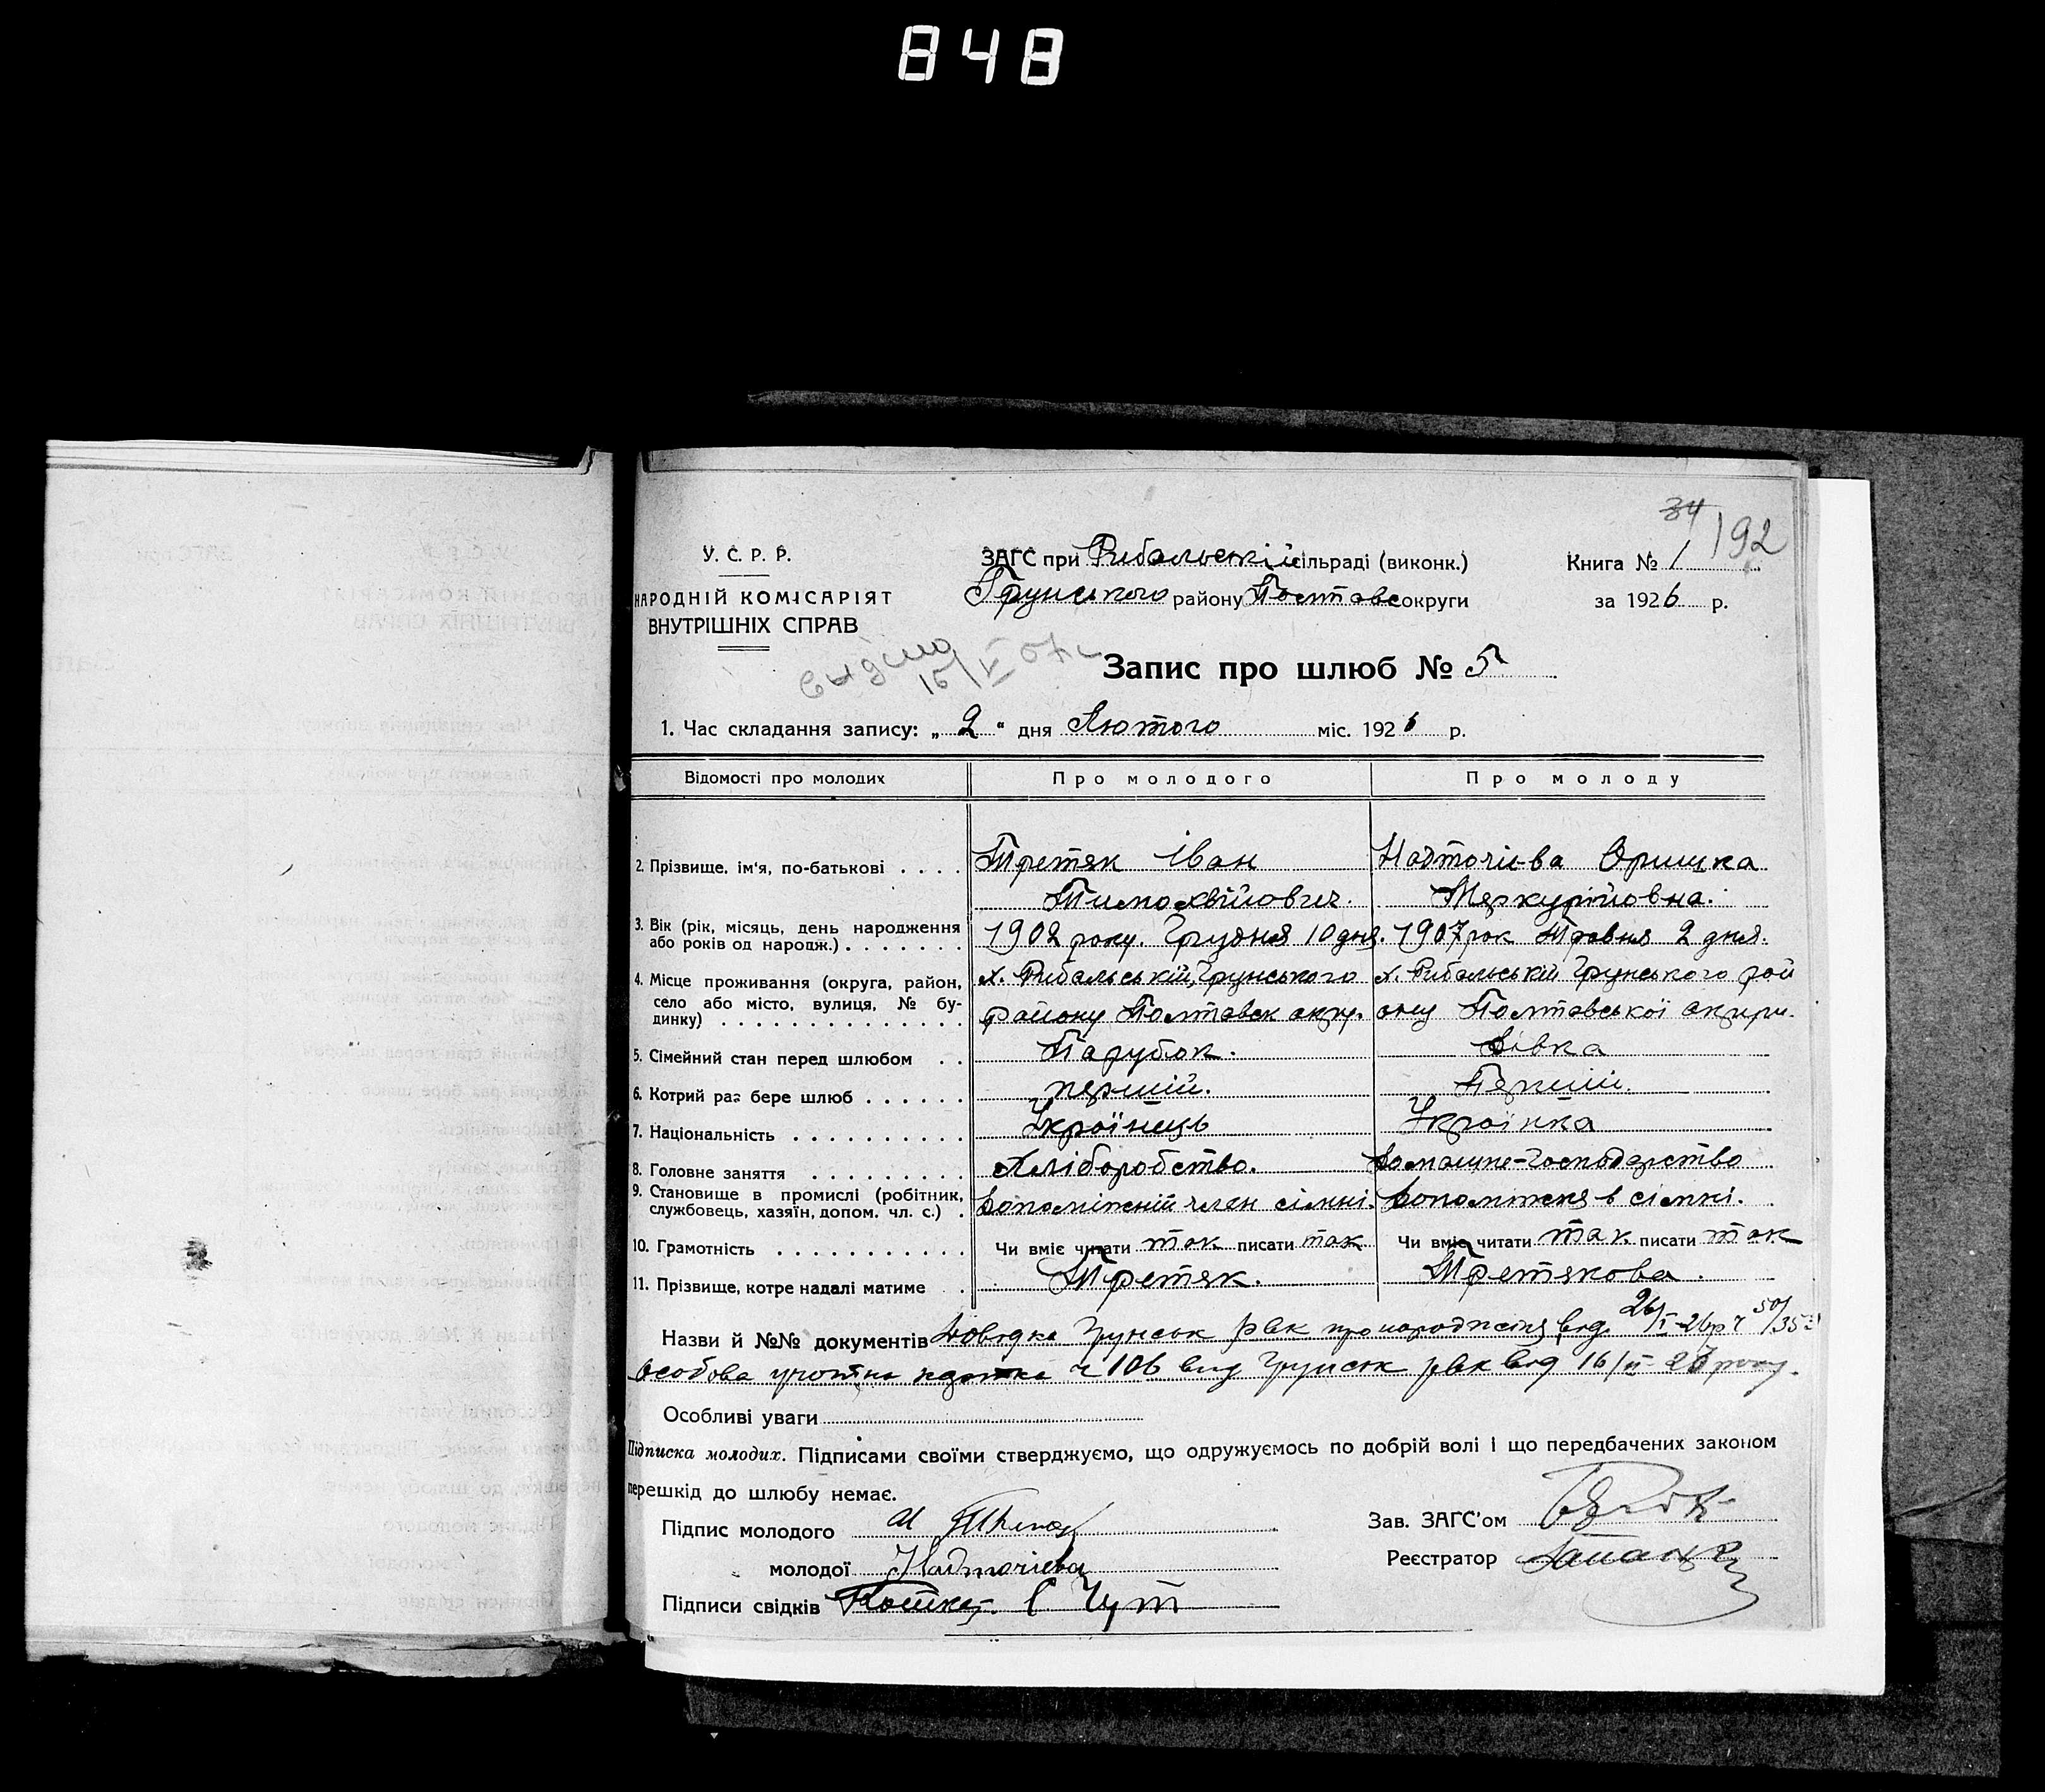 848
34 192
У. С. Р. Р.
ЗАГС при Рибальській сільраді (виконк.)
Книга № 1
НАРОДНІЙ КОМІСАРІЯТ
Грунського району Полтавс округи
за 1926 р.
ВНУТРІШНІХ СПРАВ
Запис про шлюб № 5
1. Час складання запису: „ 2 “ дня Лютого міс. 1926 р.
Відомості про молодих Про молодого Про молоду
2. Прізвище, ім'я, по-батькові . . . . Третяк Іван Надточієва Оришка
Тимохвійович. Меркурійовна.
3. Вік (рік, місяць, день народження 1902 року. Грудня 10 дня. 1907 рок Травня 2 дня.
або років од народж.) . . . . . . .
4. Місце проживання (округа, район, х. Рибальській, Грунського х. Рибальській Грунського рай
село або місто, вулиця, № бу-
динку) . . . . . . . . . . . . . . району Полтавск окру. ону Полтавської округи.
5. Сімейний стан перед шлюбом . . Парубок. Дівка
6. Котрий раз бере шлюб . . . . . . перший. Перший.
7. Національність . . . . . . . . . . Україньць Українка
8. Головне заняття . . . . . . . . . Хліборобство. Домашне-Господарство
9. Становище в промислі (робітник, Допоміжній член сімні. Допоміжня в сімні.
службовець, хазяїн, допом. чл. с.) .
10. Грамотність . . . . . . . . . . . Чи вміє читати так писати так Чи вміє читати так писати так
11. Прізвище, котре надалі матиме . Третяк. Третякова.
Назви й №№ документів Довідка Грунськ рвк про народження від 26/I-26р ч 50/35
Особова учотна картка ч 106 від Грунск рвк від 16/II 26 року.
Особливі уваги
Підписка молодих. Підписами своїми стверджуємо, що одружуємось по добрій волі і що передбачених законом
перешкід до шлюбу немає.
Підпис молодого
Зав. ЗАГС'ом
молодої Надточієва
Реєстратор
Підписи свідків